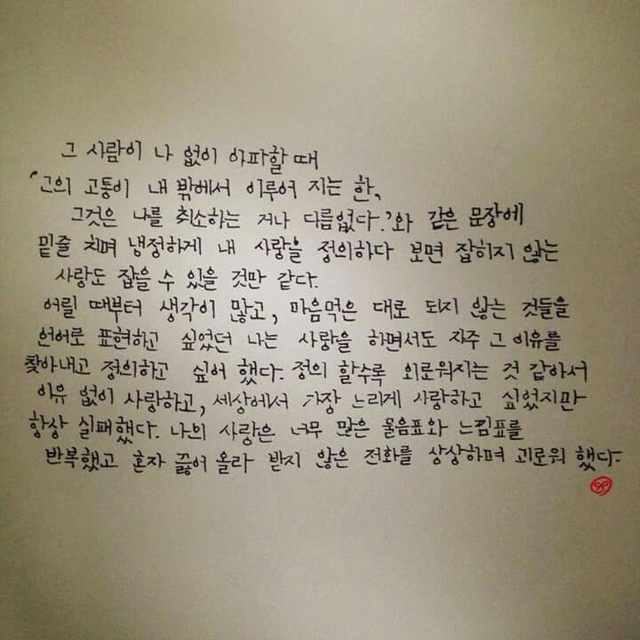 그 사람이 나 없이 아파할 때
'그의 고통이 내 밖에서 이루어 지는 한,
그것은 나를 취소하는 거나 다름없다.'와 같은 문장에
밑줄 치며 냉정하게 내 사랑을 정의하다 보면 잡히지 않는
사랑도 잡을 수 있을 것만 같다.
어릴 때부터 생각이 많고, 마음먹은 대로 되지 않는 것들을
언어로 표현하고 싶었던 나는 사랑을 하면서도 자주 그 이유를
찾아내고 정의하고 싶어 했다. 정의 할수록 외로워지는 것 같아서
이유 없이 사랑하고, 세상에서 가장 느리게 사랑하고 싶었지만
항상 실패했다. 나의 사랑은 너무 많은 물음표와 느낌표를
반복했고 혼자 끓어 올라 받지 않은 전화를 상상하며 괴로워 했다.